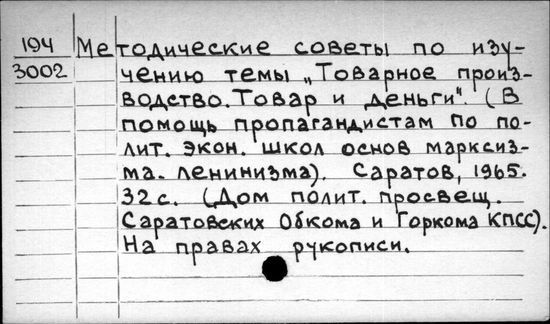 194 Методические советы по изу-
3002 чению темы „Товарное произ-
водство. Товар и деньги". (В
помощь пропагандистам по по-
лит. экон. школ основ марксиз-
ма-ленинизма). Саратов, 1965.
32 с. (Дом полит. просвещ.
Саратовских Обкома и Горкома КПСС).
На правах рукописи.